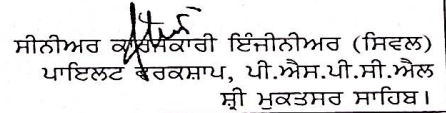 ਸੀਨੀਅਰ ਕਾਰਜਕਾਰੀ ਇੰਜੀਨੀਅਰ (ਸਿਵਲ)
ਪਾਇਲਟ ਵਰਕਸ਼ਾਪ, ਪੀ.ਐਸ.ਪੀ.ਸੀ.ਐਲ
ਸ਼੍ਰੀ ਮੁਕਤਸਰ ਸਾਹਿਬ।